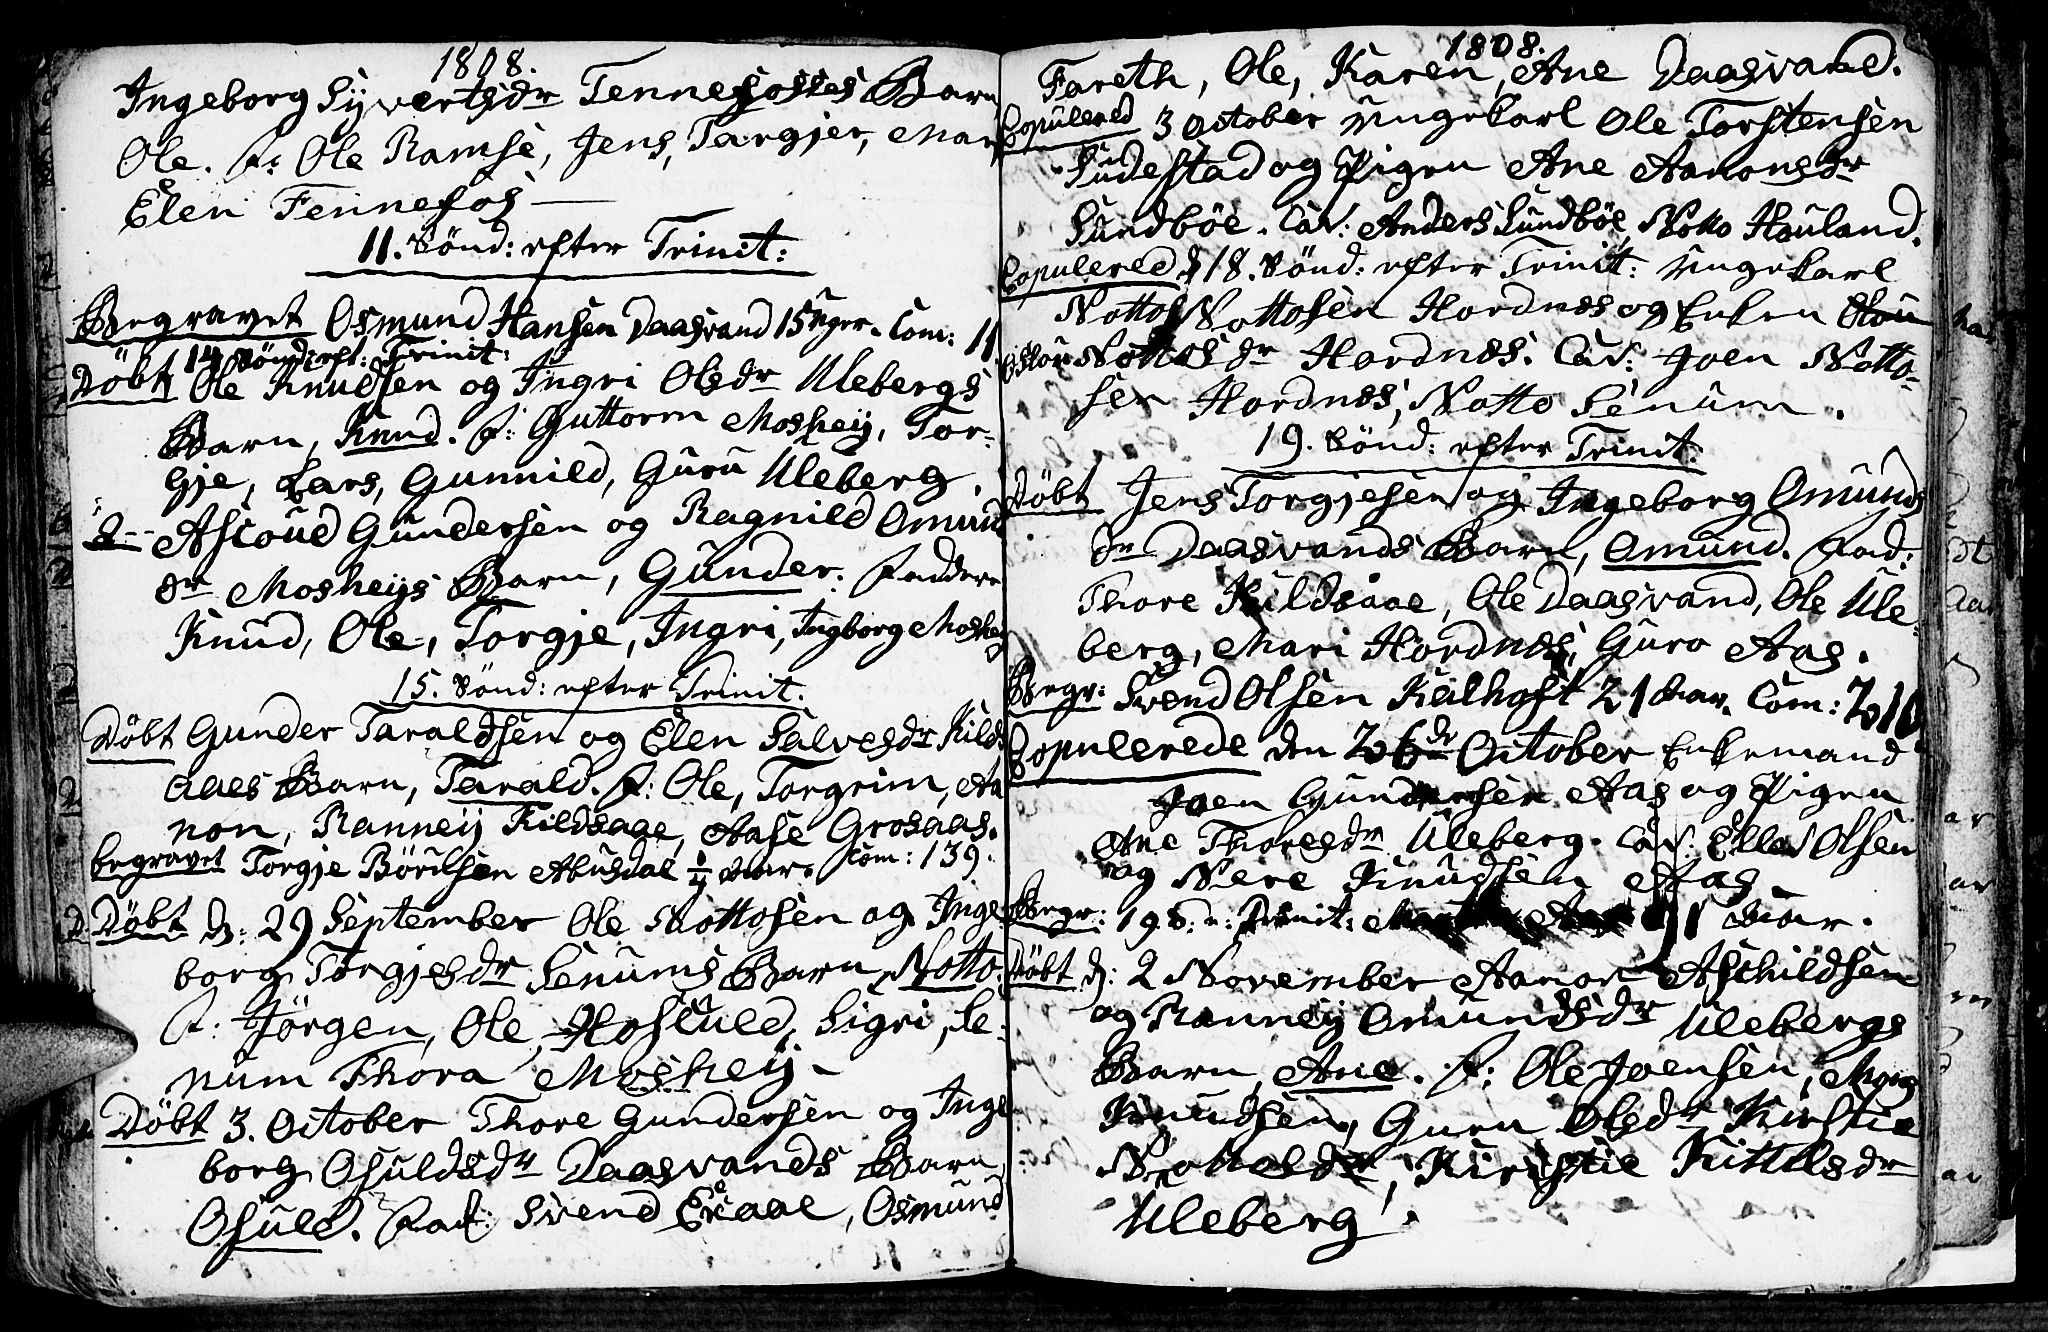 1808.
Ingeborg Syvertsdr Fennefosses Barn
Ole. F: Ole Ramse, Jens, Targjer, Mari
Elen Fennefos —
11. Sönd: efter Trinit:
Begravet Osmund Hansen Daasvand 15 Uger. Com: 11
14 Sönd: eft: Trinit:
Döbt Ole Knudsen og Ingri Olsdr Ulebergs
Barn, Knud. F: Guttorm Mosheij, Tor-
gje, Lars, Gunnild, Guru Uleberg.
D-- Ascoud Gundersen og Ragnild Omund
dr Mosheijs Barn, Gunder. Faddere
Knud, Ole, Torgje, Ingri, Ingborg Moshey
15. Sönd: efter Trinit.
Döbt Gunder Taraldsen og Elen Salvesdr Kilds
aaes Barn, Tarald. F: Ole, Torgrim, Aa
non, Ranneij Kildsaae, Aase Grosaas.
begravet Torgje Börilsen Abusdal ¼ Aar. Com: 139.
Döbt d: 29 September Ole Nottosen og Inge
borg Torgjesdr Senums Barn, Notto.
F: Jörgen, Ole, Hosculd, Sigri, Se-
num Thora Mosheij.
Döbt 3. October Thore Gundersen og Inge
borg Osuldsdr Daasvands Barn
Osuld. Fad: Svend Exaae, Osmund
1808.
Fareth, Ole, Karen, Ane Daasvand.
Copulered 3 October Ungekarl Ole Torstensen
Sudestad og Pigen Ane Aanonsdr
Sundböe. Cav: Anders Sundböe, Notto Houland.
Copulered d 18. Sönd: efter Trinit: Ungekarl
Nottos Nottosen Hordnes og Enken
Nottosdr Hordnes. Cav: Joen Notto-
sen Hordnes, Notto Senum.
19. Sönd: efter Trinit.
Döbt Jens Torgjesen og Ingeborg Omunds
dr Daasvands Barn, Omund. Fad:
Thore Kildsaae, Ole Daasvand, Ole Ule-
berg, Mari Hordnes, Guro Aas.
Begr: Svend Olsen Kalhoft 21 Aar. Com: 210
Copulerede den 26de October Enkemand
Joen Gundersen Aas og Pigen
Ane Thoresdr Uleberg. Cav: Ellef Olsen
og Nere Knudsen Aas.
Begr: 19 S. e: Trinit: 91 Aar.
Döbt d: 2 November Aanon Aschildsen
og Ranneij Omundsdr Ulebergs
Barn, Ane. F: Ole Joensen, Mons
Knudsen, Guru Olsdr Kirstie
Nottosdr, Kirstie Kittelsdr
Uleberg.